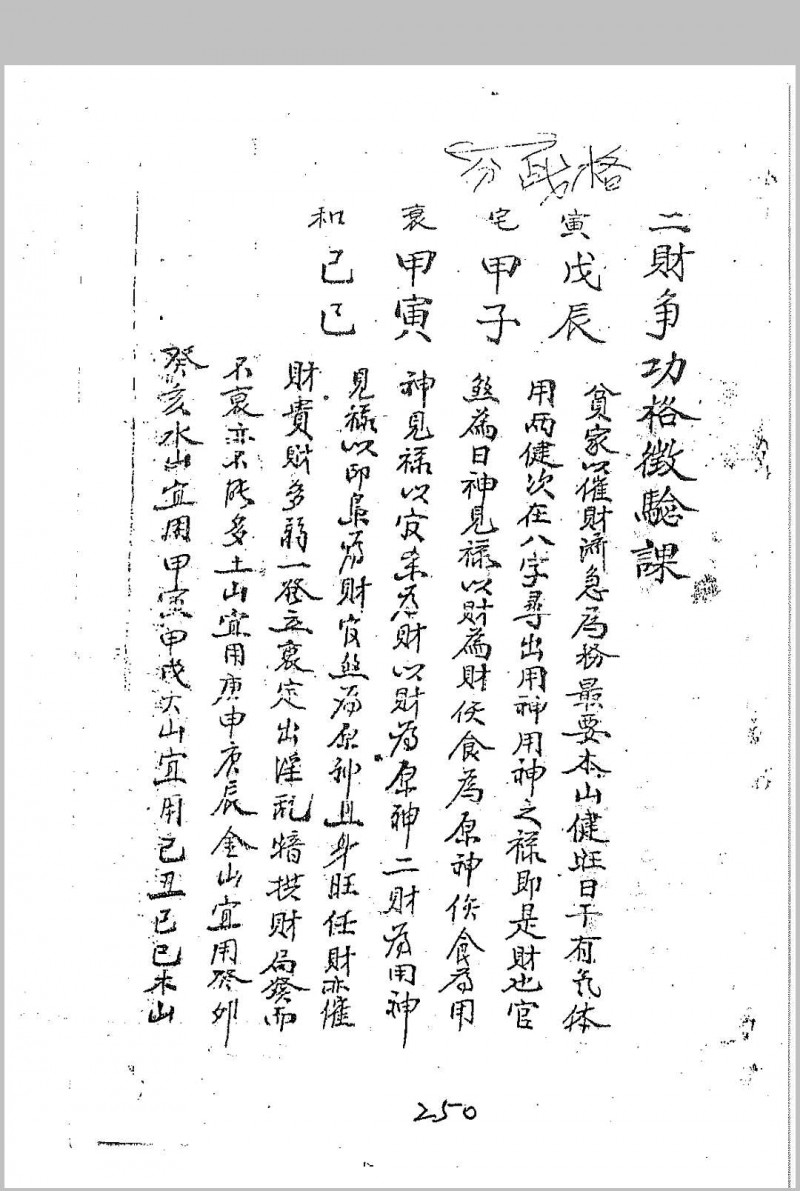 二財争功格徵驗課
寅 戊辰
宅 甲子
衰 甲寅
和 己巳
貧家以催財濟急為務最要本山健旺日干有气体
用两健次在八字尋出用神用神之禄即是財也官
煞為日神見禄以財為財伤食為原神伤食為用
神見禄以官杀為財以財為原神二財為用神
見禄以印枭為財官煞為原神且身旺任財亦催
財貴財多弱一發立衰定出淫乱暗拱財局發而
不衰亦不能多土山宜用庚申庚辰金山宜用癸卯
癸亥水山宜用甲寅甲戌火山宜用己丑己巳木山
250